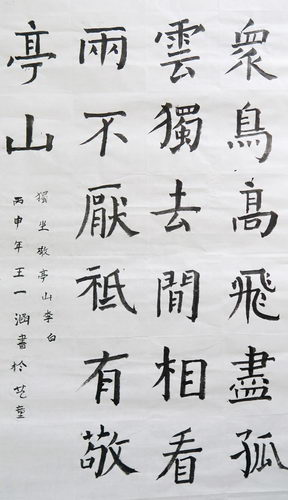 衆鳥高飛盡孤
雲獨去閒相看
兩不厭祗有敬
亭山
獨坐敬亭山李白
丙申年王一涵書於